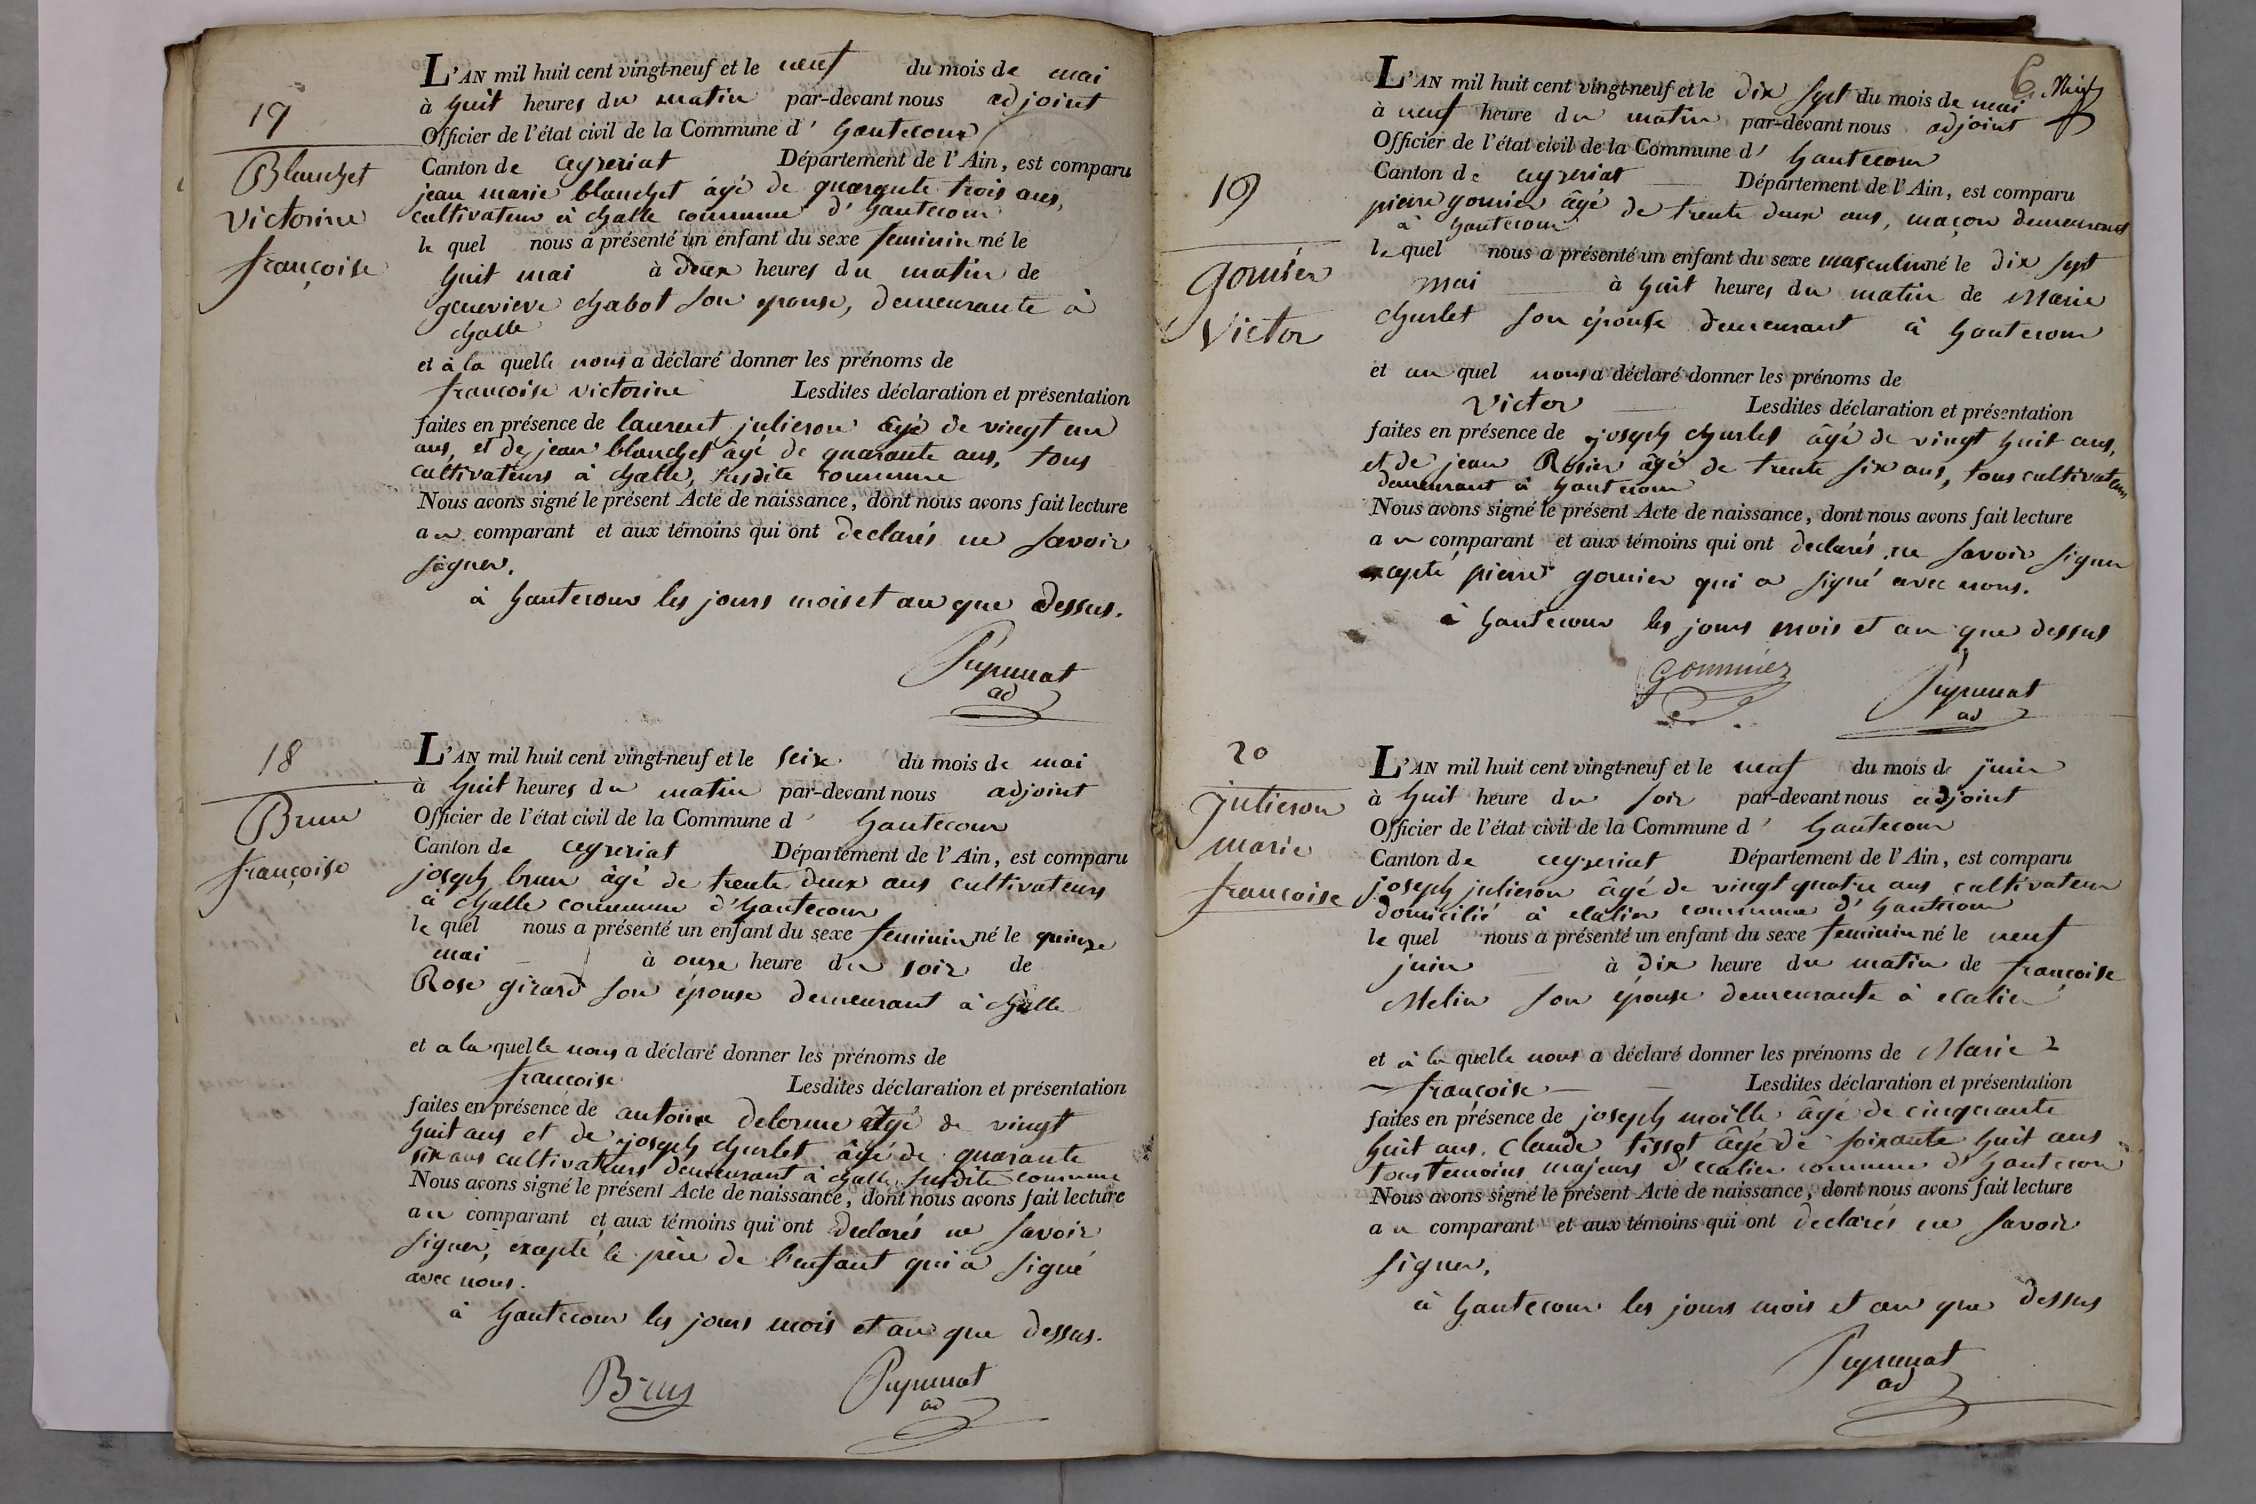 17
Blanchet
victorine
françoise
L'AN mil huit cent vingt-neuf et le neuf du mois de mai
à huit heures du matin par-devant nous adjoint
Officier de l'état civil de la Commune d' hautecour
Canton de ceyzeriat Département de l'Ain, est comparu
jean marie blanchet âgé de quarante trois ans,
cultivateur à challe commune d'hautecour
le quel nous a présenté un enfant du sexe feminin né le
huit mai à deux heures du matin de
genevieve chabot son epouse, demeurante à
challe
et à la quelle nous a déclaré donner les prénoms de
francoise victorine Lesdites déclaration et présentation
faites en présence de laurent julieron âgé de vingt un
ans, et de jean blanchet âgé de quarante ans, tous
cultivateurs à challe, susdite commune
Nous avons signé le présent Acte de naissance, dont nous avons fait lecture
au comparant et aux témoins qui ont declarés ne savoir
signer.
à hautecour les jours mois et an que dessus.
ad
18
Brun
françoise
L'AN mil huit cent vingt-neuf et le seize du mois de mai
à huit heures du matin par-devant nous adjoint
Officier de l'état civil de la Commune d' hautecour
Canton de ceyzeriat Département de l'Ain, est comparu
joseph brun âgé de trente deux ans cultivateurs
à challe commune d'hautecour
le quel nous a présenté un enfant du sexe feminin né le quinze
mai à onze heure du soir de
Rose girard son épouse demeurant à challe
et a la quelle nous a déclaré donner les prénoms de
francoise Lesdites déclaration et présentation
faites en présence de antoine delorme âgé de vingt
huit ans et de joseph churlet âgé de quarante
six ans cultivateurs demeurant à challe susdite commune
Nous avons signé le présent Acte de naissance, dont nous avons fait lecture
au comparant et aux témoins qui ont declarés ne savoir
signer, excepté le père de l'enfant qui a signé
avec nous.
à hautecour les jours mois et an que dessus.
Brun
ad
19
gomier
Victor
L'AN mil huit cent vingt-neuf et le dix sept du mois de mai
à neuf heure du matin par-devant nous adjoint
Officier de l'état civil de la Commune d' hautecour
Canton de ceyzeriat Département de l'Ain, est comparu
pierre gomier âgé de trente deux ans, maçon demeurant
à hautecour
le quel nous a présenté un enfant du sexe masculin né le dix sept
mai à huit heures du matin de Marie
churlet son épouse demeurant à hautecour
et au quel nous a déclaré donner les prénoms de
Victor Lesdites déclaration et présentation
faites en présence de joseph churlet âgé de vingt huit ans,
et de jean Rosier âgé de trente six ans, tous cultivateurs
demeurant à hautecour
Nous avons signé le présent Acte de naissance, dont nous avons fait lecture
au comparant et aux témoins qui ont declarés ne savoir signer
excepté pierre gomier qui a signé avec nous.
à hautecour les jours mois et an que dessus
ad
20
julieron
marie
francoise
L'AN mil huit cent vingt-neuf et le neuf du mois de juin
à huit heure du soir par-devant nous adjoint
Officier de l'état civil de la Commune d' hautecour
Canton de ceyzeriat Département de l'Ain, est comparu
joseph julieron âgé de vingt quatre ans cultivateur
domicilié à commune d'hautecour
le quel nous a présenté un enfant du sexe feminin né le neuf
juin à dix heure du matin de françoise
Melin son épouse demeurante à
et à la quelle nous a déclaré donner les prénoms de Marie
françoise Lesdites déclaration et présentation
faites en présence de joseph moille âgé de cinquante
huit ans. Claude tissot âgé de soixante huit ans
tous temoins majeurs commune d'hautecour
Nous avons signé le présent Acte de naissance, dont nous avons fait lecture
au comparant et aux témoins qui ont declarés ne savoir
signer.
à hautecour les jours mois et an que dessus
ad